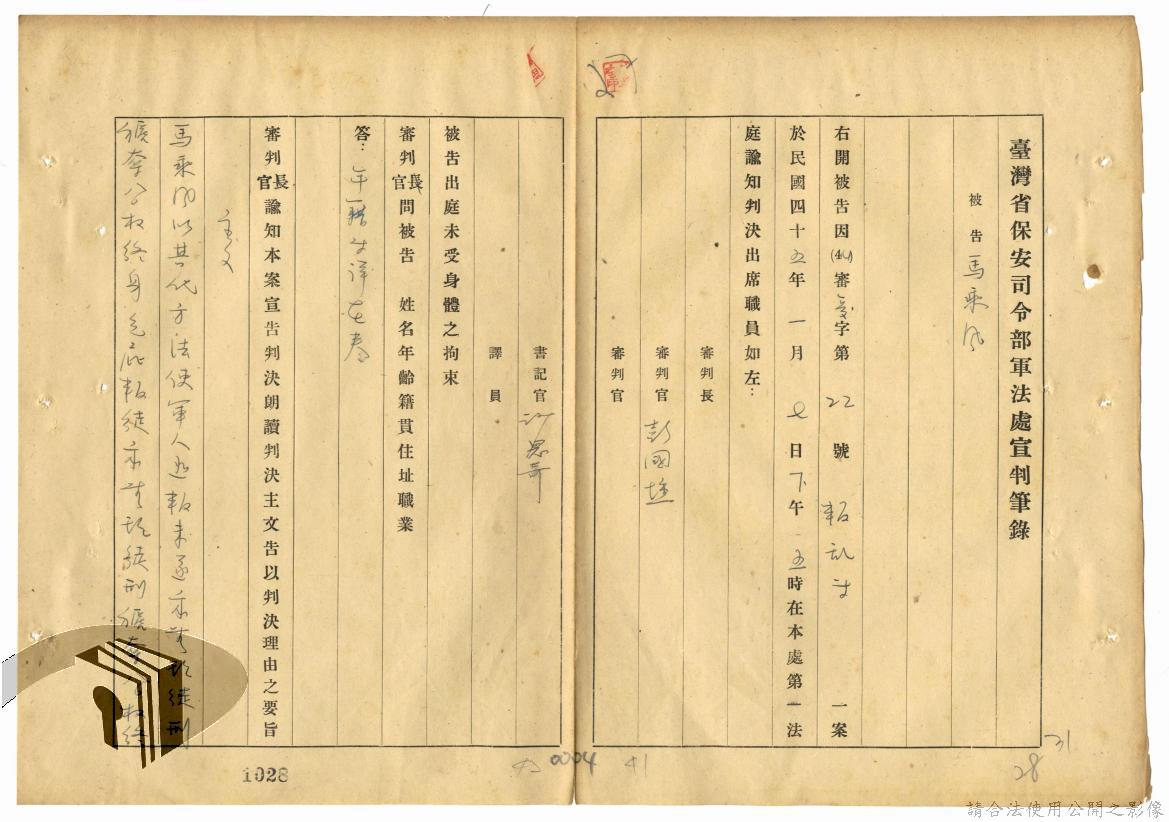 臺灣省保安司令部軍法處宣判筆錄
被告 馬乘風
右開被告因(44)審 字第 22 號 叛亂 一案
於民國四十五年 一月 七日下午 五時在本處第一法
庭諭知判決出席職員如左：
審判長
審判官 彭國壎
審判官
書記官
譯員
被告出庭未受身體之拘束
審判長官問被告 姓名年齡籍貫住址職業
答：年籍 詳在卷
審判長官諭知本案宣告判決朗讀判決主文告以判決理由之要旨
主文
馬乘風以其他方法使軍人逃叛未遂 處無期徒刑
褫奪公權終身包庇叛徒處無期徒刑褫奪公權終
1028
0004
41
28
31
請合法使用公開之影像